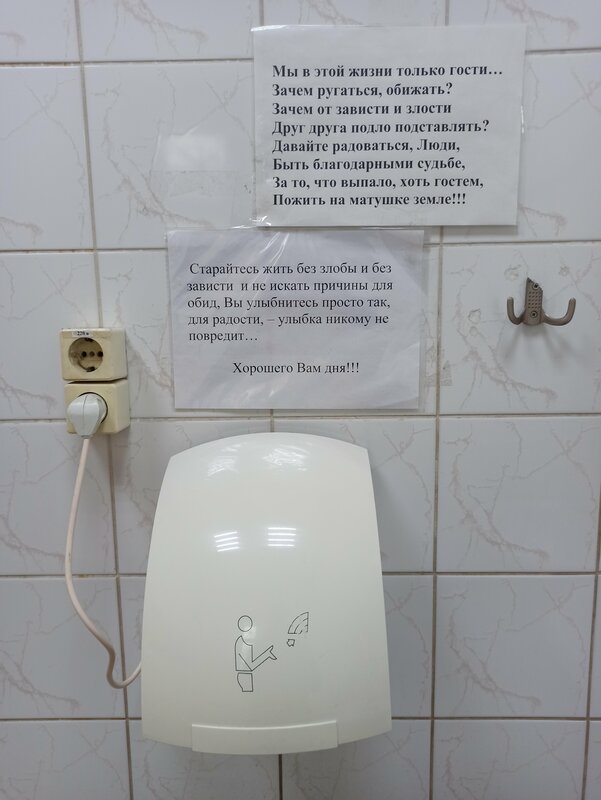 Мы в этой жизни только гости...
Зачем ругаться, обижать?
Зачем от зависти и злости
Друг друга подло подставлять?
Давайте радоваться, Люди,
Быть благодарными судьбе,
За то, что выпало, хоть гостем,
Пожить на матушке земле!!!
Старайтесь жить без злобы и без
зависти и не искать причины для
обид, Вы улыбнитесь просто так,
для радости, – улыбка никому не
повредит...
Хорошего Вам дня!!!